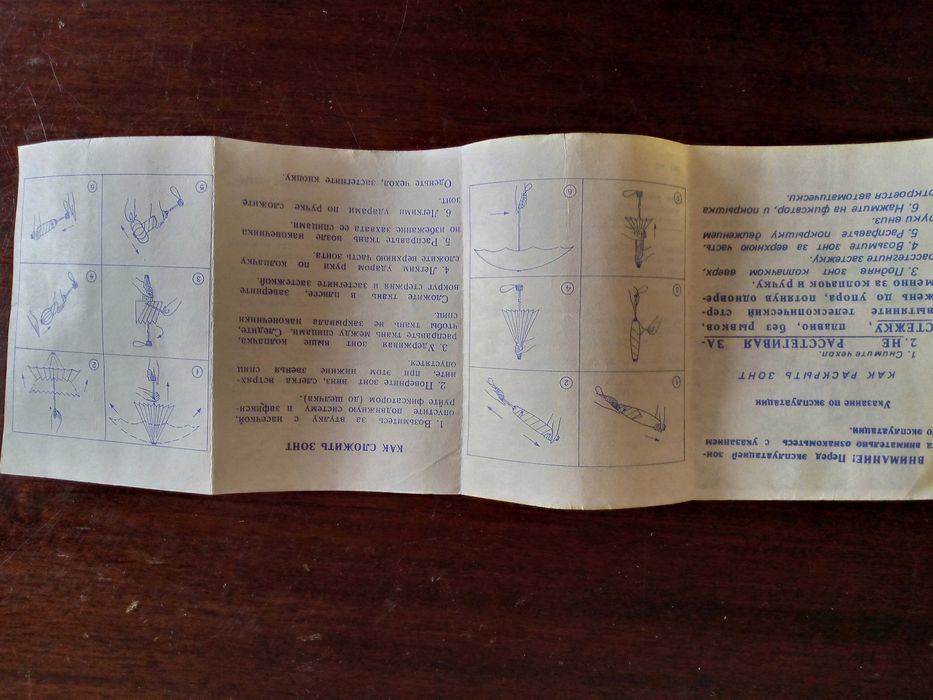 ВНИМАНИЕ! Перед эксплуатацией зон-
та внимательно ознакомьтесь с указанием
по эксплуатации.
Указание по эксплуатации
КАК РАСКРЫТЬ ЗОНТ
1. Снимите чехол.
2. НЕ РАССТЕГИВАЯ ЗА-
СТЕЖКУ, плавно, без рывков,
вытяните телескопический стер-
жень до упора, потянув одновре-
менно за колпачок и ручку.
3. Подняв зонт колпачком вверх,
расстегните застежку.
4. Возьмите зонт за верхнюю часть.
5. Расправьте покрышку движением
руки вниз.
6. Нажмите на фиксатор, и покрышка
откроется автоматически.
1 2
3 4
5 6
КАК СЛОЖИТЬ ЗОНТ
1. Возьмитесь за втулку с насечкой,
опустите подвижную систему и зафикси-
руйте фиксатором (до щелчка).
2. Поверните зонт вниз, слегка встрях-
ните, при этом нижние звенья спиц
опустятся.
3. Удерживая зонт выше колпачка,
расправьте ткань между спицами. Следите,
чтобы ткань не закрывала наконечники
спиц.
Сложите ткань в плиссе, заверните
вокруг стержня и застегните застежкой.
4. Легким ударом руки по колпачку
сложите верхнюю часть зонта.
5. Расправьте ткань возле наконечника
во избежание захвата ее спицами.
6. Легкими ударами по ручке сложите
зонт.
Оденьте чехол, застегните кнопку.
1 2
3 4
5 6